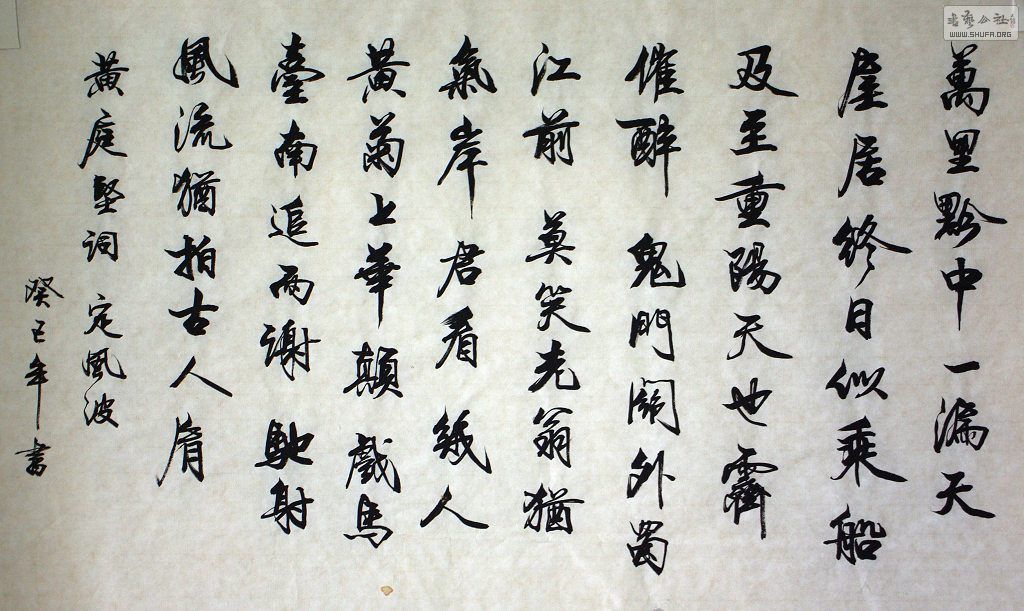 萬里黔中一漏天
屋居終日似乘船
及至重陽天也霽
催醉 鬼門關外蜀
江前 莫笑老翁猶
氣岸 君看 幾人
黃菊上華顛 戲馬
臺南追兩謝 馳射
風流猶拍古人肩
黃庭堅詞 定風波
癸巳年書
書藝公社
WWW.SHUFA.ORG